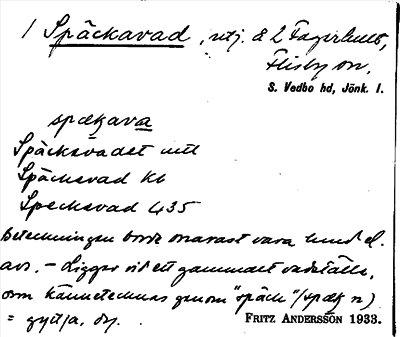 1 Späckavad, utj. å 2 Fagerhult,
Flisby sn,
S. Vedbo hd, Jönk. l.
spækava
Späckavadet
Späckavad Kb
Speckavad 435
Beteckningen borde snarast vara hund el.
avs. – Ligger vid ett gammalt vadställe,
som kännetecknas genom "späck" (spæk n)
= gyttja, dy. FRITZ ANDERSSON 1933.